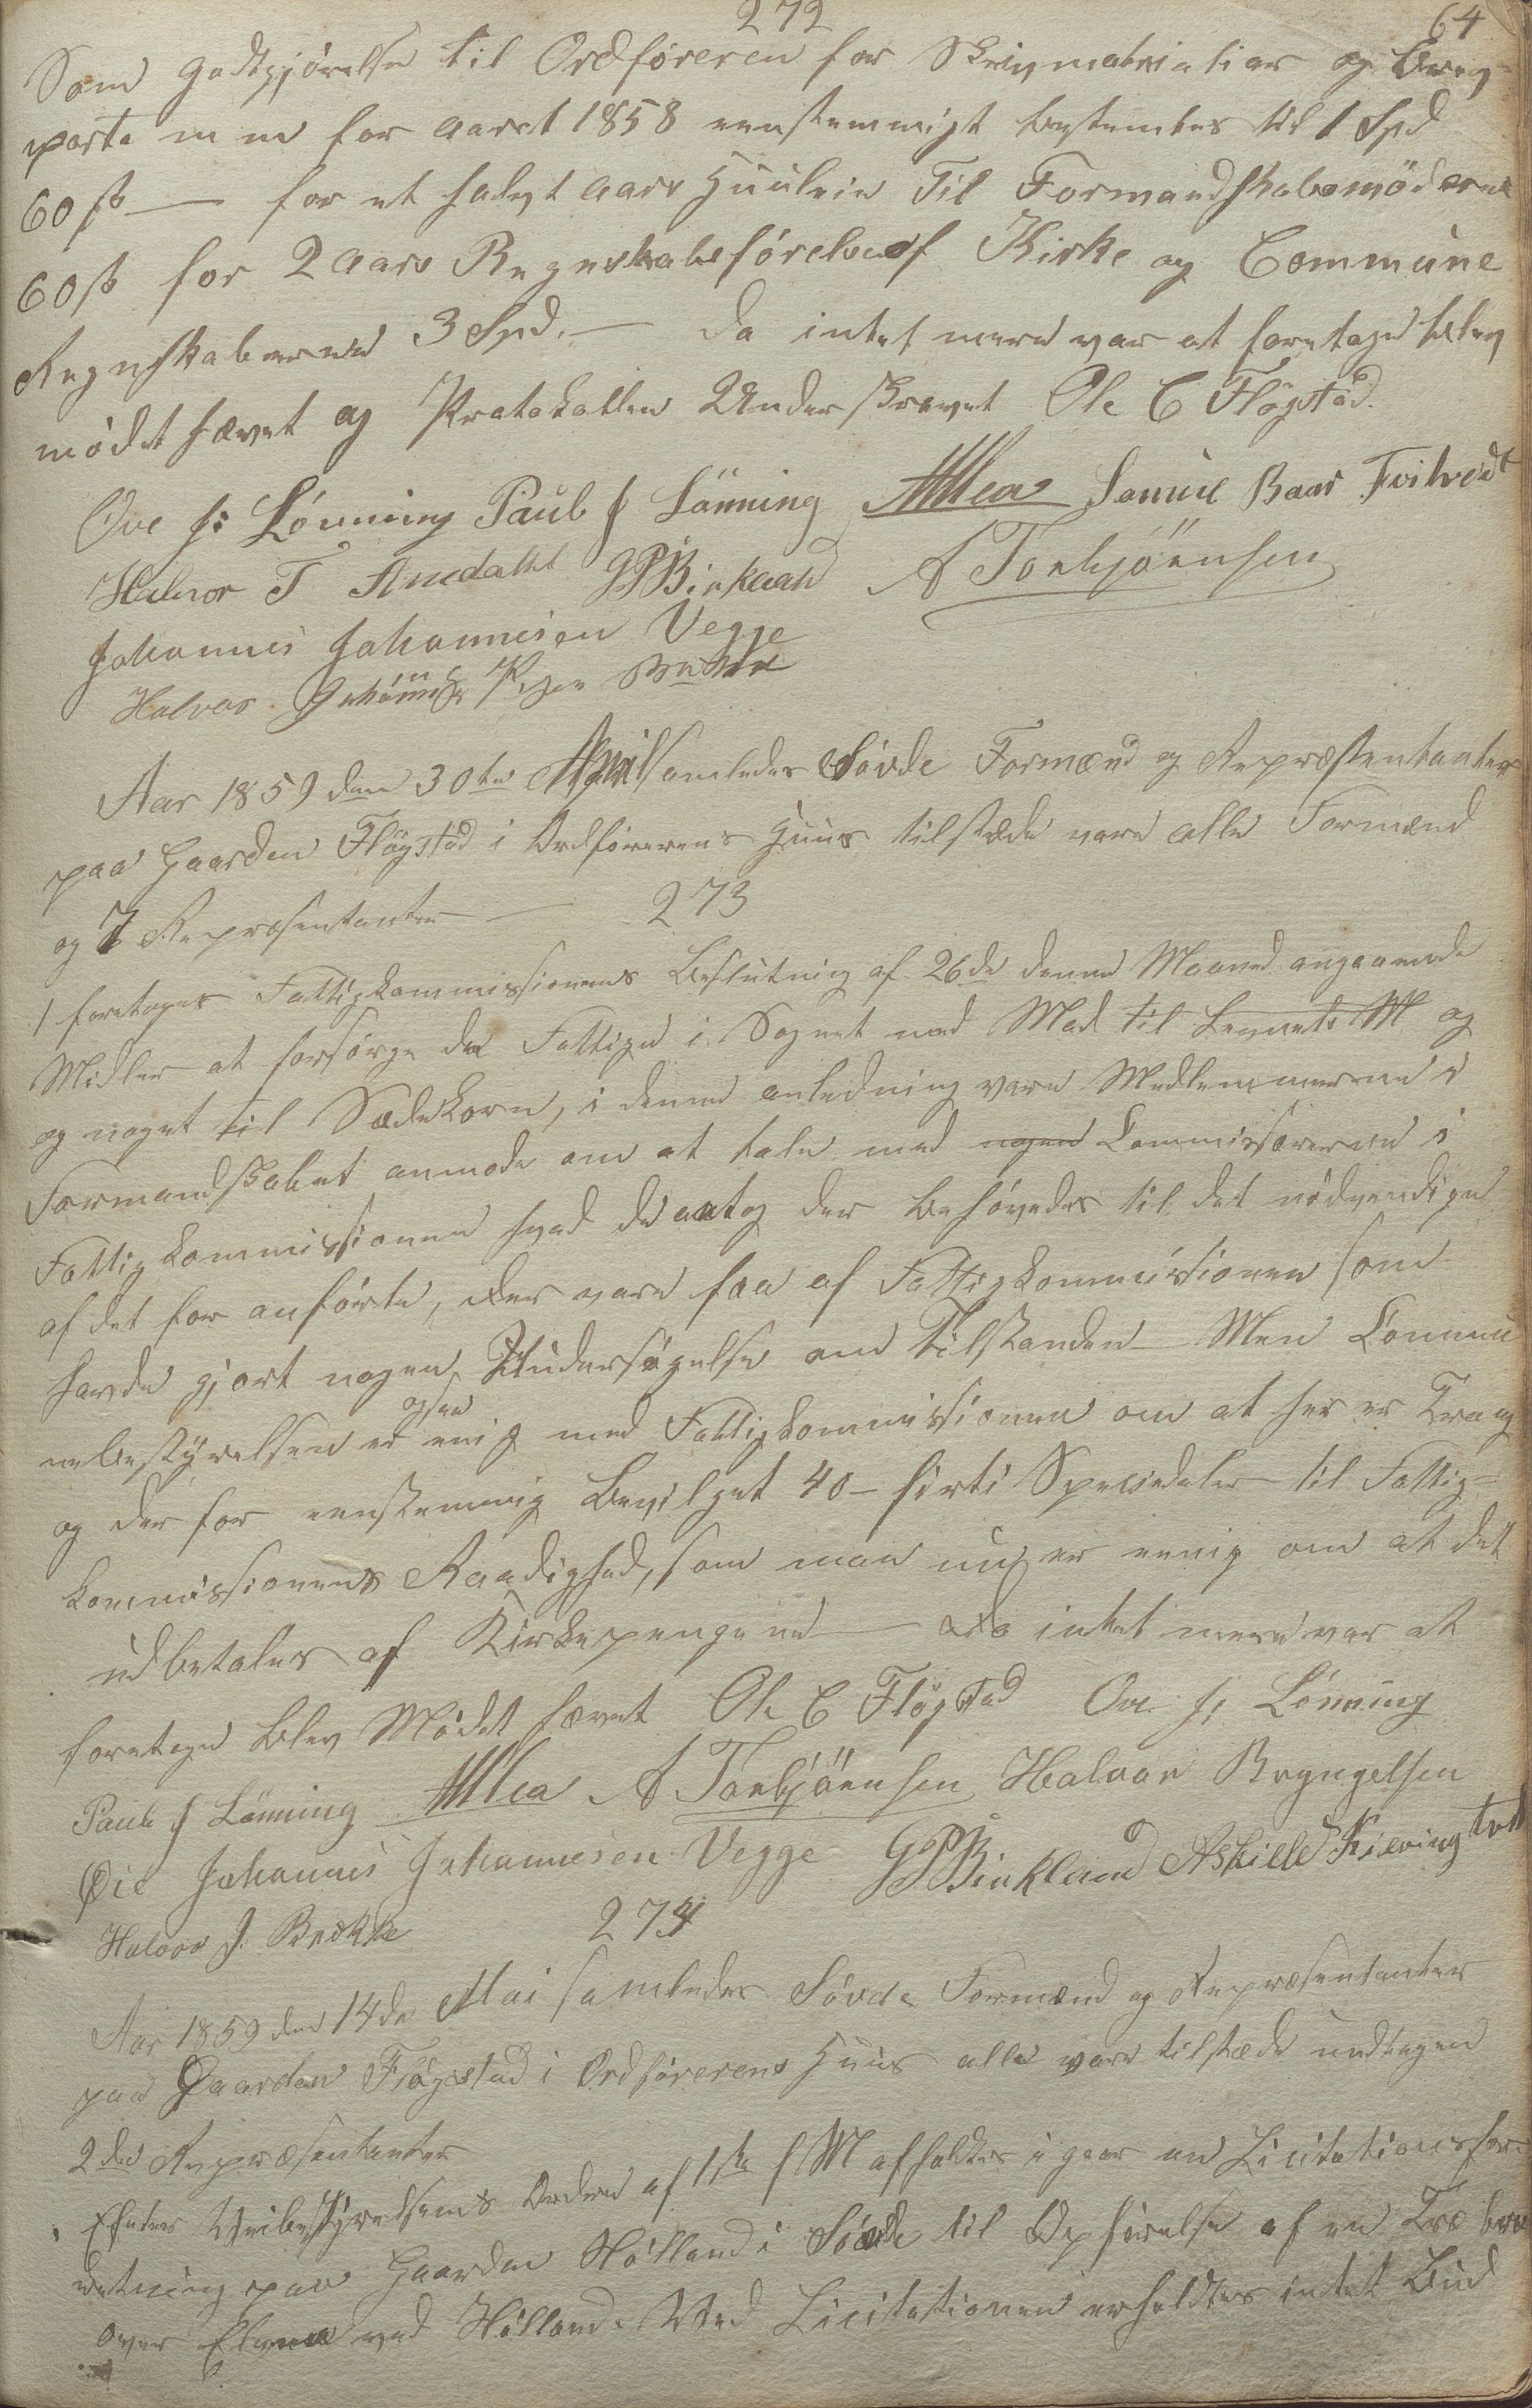 272
64
Som godtgjörelse til Ordföreren for Skrivmatriatier og Brev
porto m m for aaret 1858 eenstemmigt bestemtes til 1 Spd
60 ß — for et halvt aars Huuleie Til Formandskabsmöderne
60 ß for 2 aars Regnskabsförelse af Kirke og Commune
Regnskaberne 3 Spd. — da intet mere var at foretage blev
mödet hævet og Protokollen Underskrevet Ole C Flögstad.
Ove J: Lönning Paul J Lönning Samuel Baar Tvitvedt
Halvor T Amdahl GPBirkeland A Torbjörnsen
Johannes Johannesen Vegge
Halvor
Aar 1859 den 30te April samledes Sövde Formænd og Repræsentanter
paa Gaarden Flögstad i Ordförerens Huus tilstæde vare alle Formænd
og 7 Repræsentanter — 273
1 foretoges Fattigkommissionens Beslutning af 26de denne Maaned angaaende
Midler at forsörge de Fattige i Sognet med Mad til Levnets M og
og noget til Sædekorn, i denne anledning vare Medlemmerne i
Formandskabet anmode om at tale med nogen Commissærerne i
Fattigkommissionen hvad de antog der behövedes til det nödvendige
af det for anförte, der vare faa af Fattigkommissionen som
havde gjort nogen Undersögelse om Tilstanden — Men Commu
nebestÿrelsen er enig med Fattigkommissionen om at her er Trang
ogsaa
og der for eenstemmig Bevilget 40 – firti Speciedaler til Fattig=
kommissionens Raadighed, som man nu er eenig om at det
udbetales af Kirkepengene — da intet mere var at
foretage blev Mödet hævet Ole C Flögstad Ove J: Lönning
Paul J Lönning A Torbjörnsen Halvor Bryngelsen
Öie Johannes Johannesen Vegge GPBirkeland Askield Kieving
Halvor J. Brække 274
Aar 1859 den 14de Mai samledes Sövde Formænd og Repræsentanter
paa Gaarden Flögstad i Ordförerens Huus alle vare tilstæde undtagen
2de Repræsentanter
Efter Veibestÿrelsens Ordre af 11te f M afholdtes i gaar en Licitationsfor
retning paa Gaarden Hölland i Sövde til Opförelse af en Træ bro
over Elven ved Hölland. Ved Licitationen erholdtes intet Bud